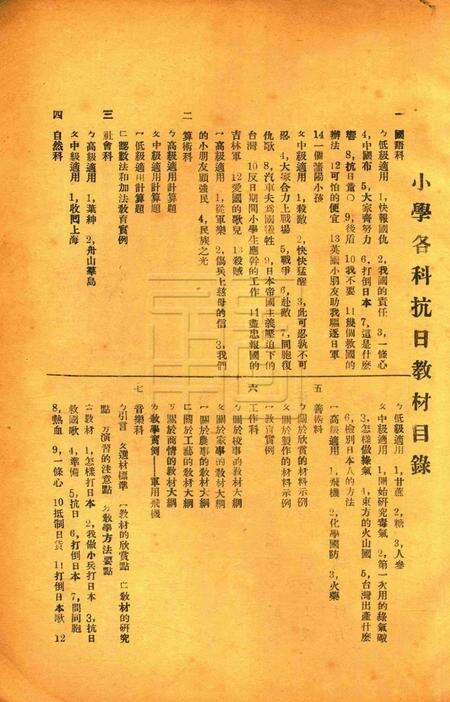 小學各科抗日教材目錄
一 國語科
ㄅ低級適用 1,快報國仇 2,我國的責任 3,一條心
4,中國布 5,大家齊努力 6,打倒日本 7,這是什麼
響 8,抗日童 9,後盾 10我不要 11幾個救國的
辦法 12可怕的便宜 13英國小朋友助我驅逐日軍
14一個瀋陽小孩
ㄆ中級適用 1,殺敵 2,快快猛醒 3,此可忍孰不可
忍 4,大家合力上戰場 5,戰爭 6,赴敵 7,同胞復
仇歌 8,汽車夫爲國犧牲 9,日本帝國主義壓迫下的
台灣 10反日期間小學生應幹的工作 11盡忠報國的
吉林軍 12愛國的歌兒 13殺賊
ㄇ高級適用 1,從軍樂 2,傷兵上慈母的信 3,我們
的小朋友願強民 4,民族之光
二 算術科
高級適用計算題
ㄆ中級適用計算題
低級適用計算題
ㄈ認數法和加法教育實例
三 社會科
ㄅ高級適用 1,葉紳 2,舟山羣島
ㄆ中級適用 1,收回上海
四 自然科
ㄅ低級適用 1,甘蔗 2,糖 3,人參
ㄆ中級適用 1,開始研究毒氣 2,第一次用的綠氣礮
3,怎樣做氣 4,東方的火山國 5,台灣出產什麼
6,檢別日本人的方法
ㄇ高級適用 1,飛機 2,化學國防 3,火藥
五 美術科
ㄅ關於欣賞的材料示例
ㄆ關於製作的材料示例
ㄇ教育實例
六 工作科
ㄅ關於校事的教材大綱
ㄆ關於家事的教材大綱
ㄇ關於農事的教材大綱
ㄈ關於工藝的教材大綱
關於商情的教材大綱
教學實例——軍用飛機
七 音樂科
ㄅ引言 ㄆ選材標準 ㄇ教材的欣賞點 ㄈ教材的研究
點 万演習的注意點 教學方法要點
教材 1,怎樣打日本 2,我做小兵打日本 3,抗日
救國歌 4,準備 5,抗日 6,打倒日本 7,同胞
8,熱血 9,一條心 10抵制日貨 11打倒日本歌 12